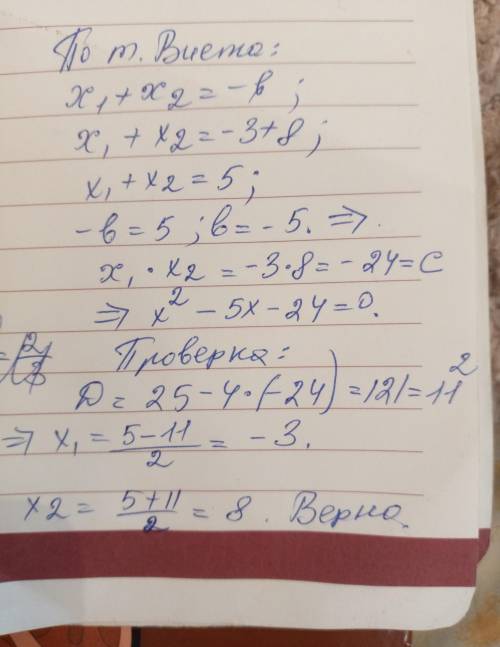 По т. Виета:
x₁ + x₂ = -в ;
x₁ + x₂ = -3+8 ;
x₁ + x₂ = 5 ;
-в = 5 ; в = -5. ⇒.
x₁ · x₂ = -3·8 = -24 = C
⇒ x² - 5x - 24 = 0.
Проверка:
Д = 25 - 4·(-24) = 121 = 11²
⇒ x₁ = (5-11)/2 = -3.
x2 = (5+11)/2 = 8. Верно